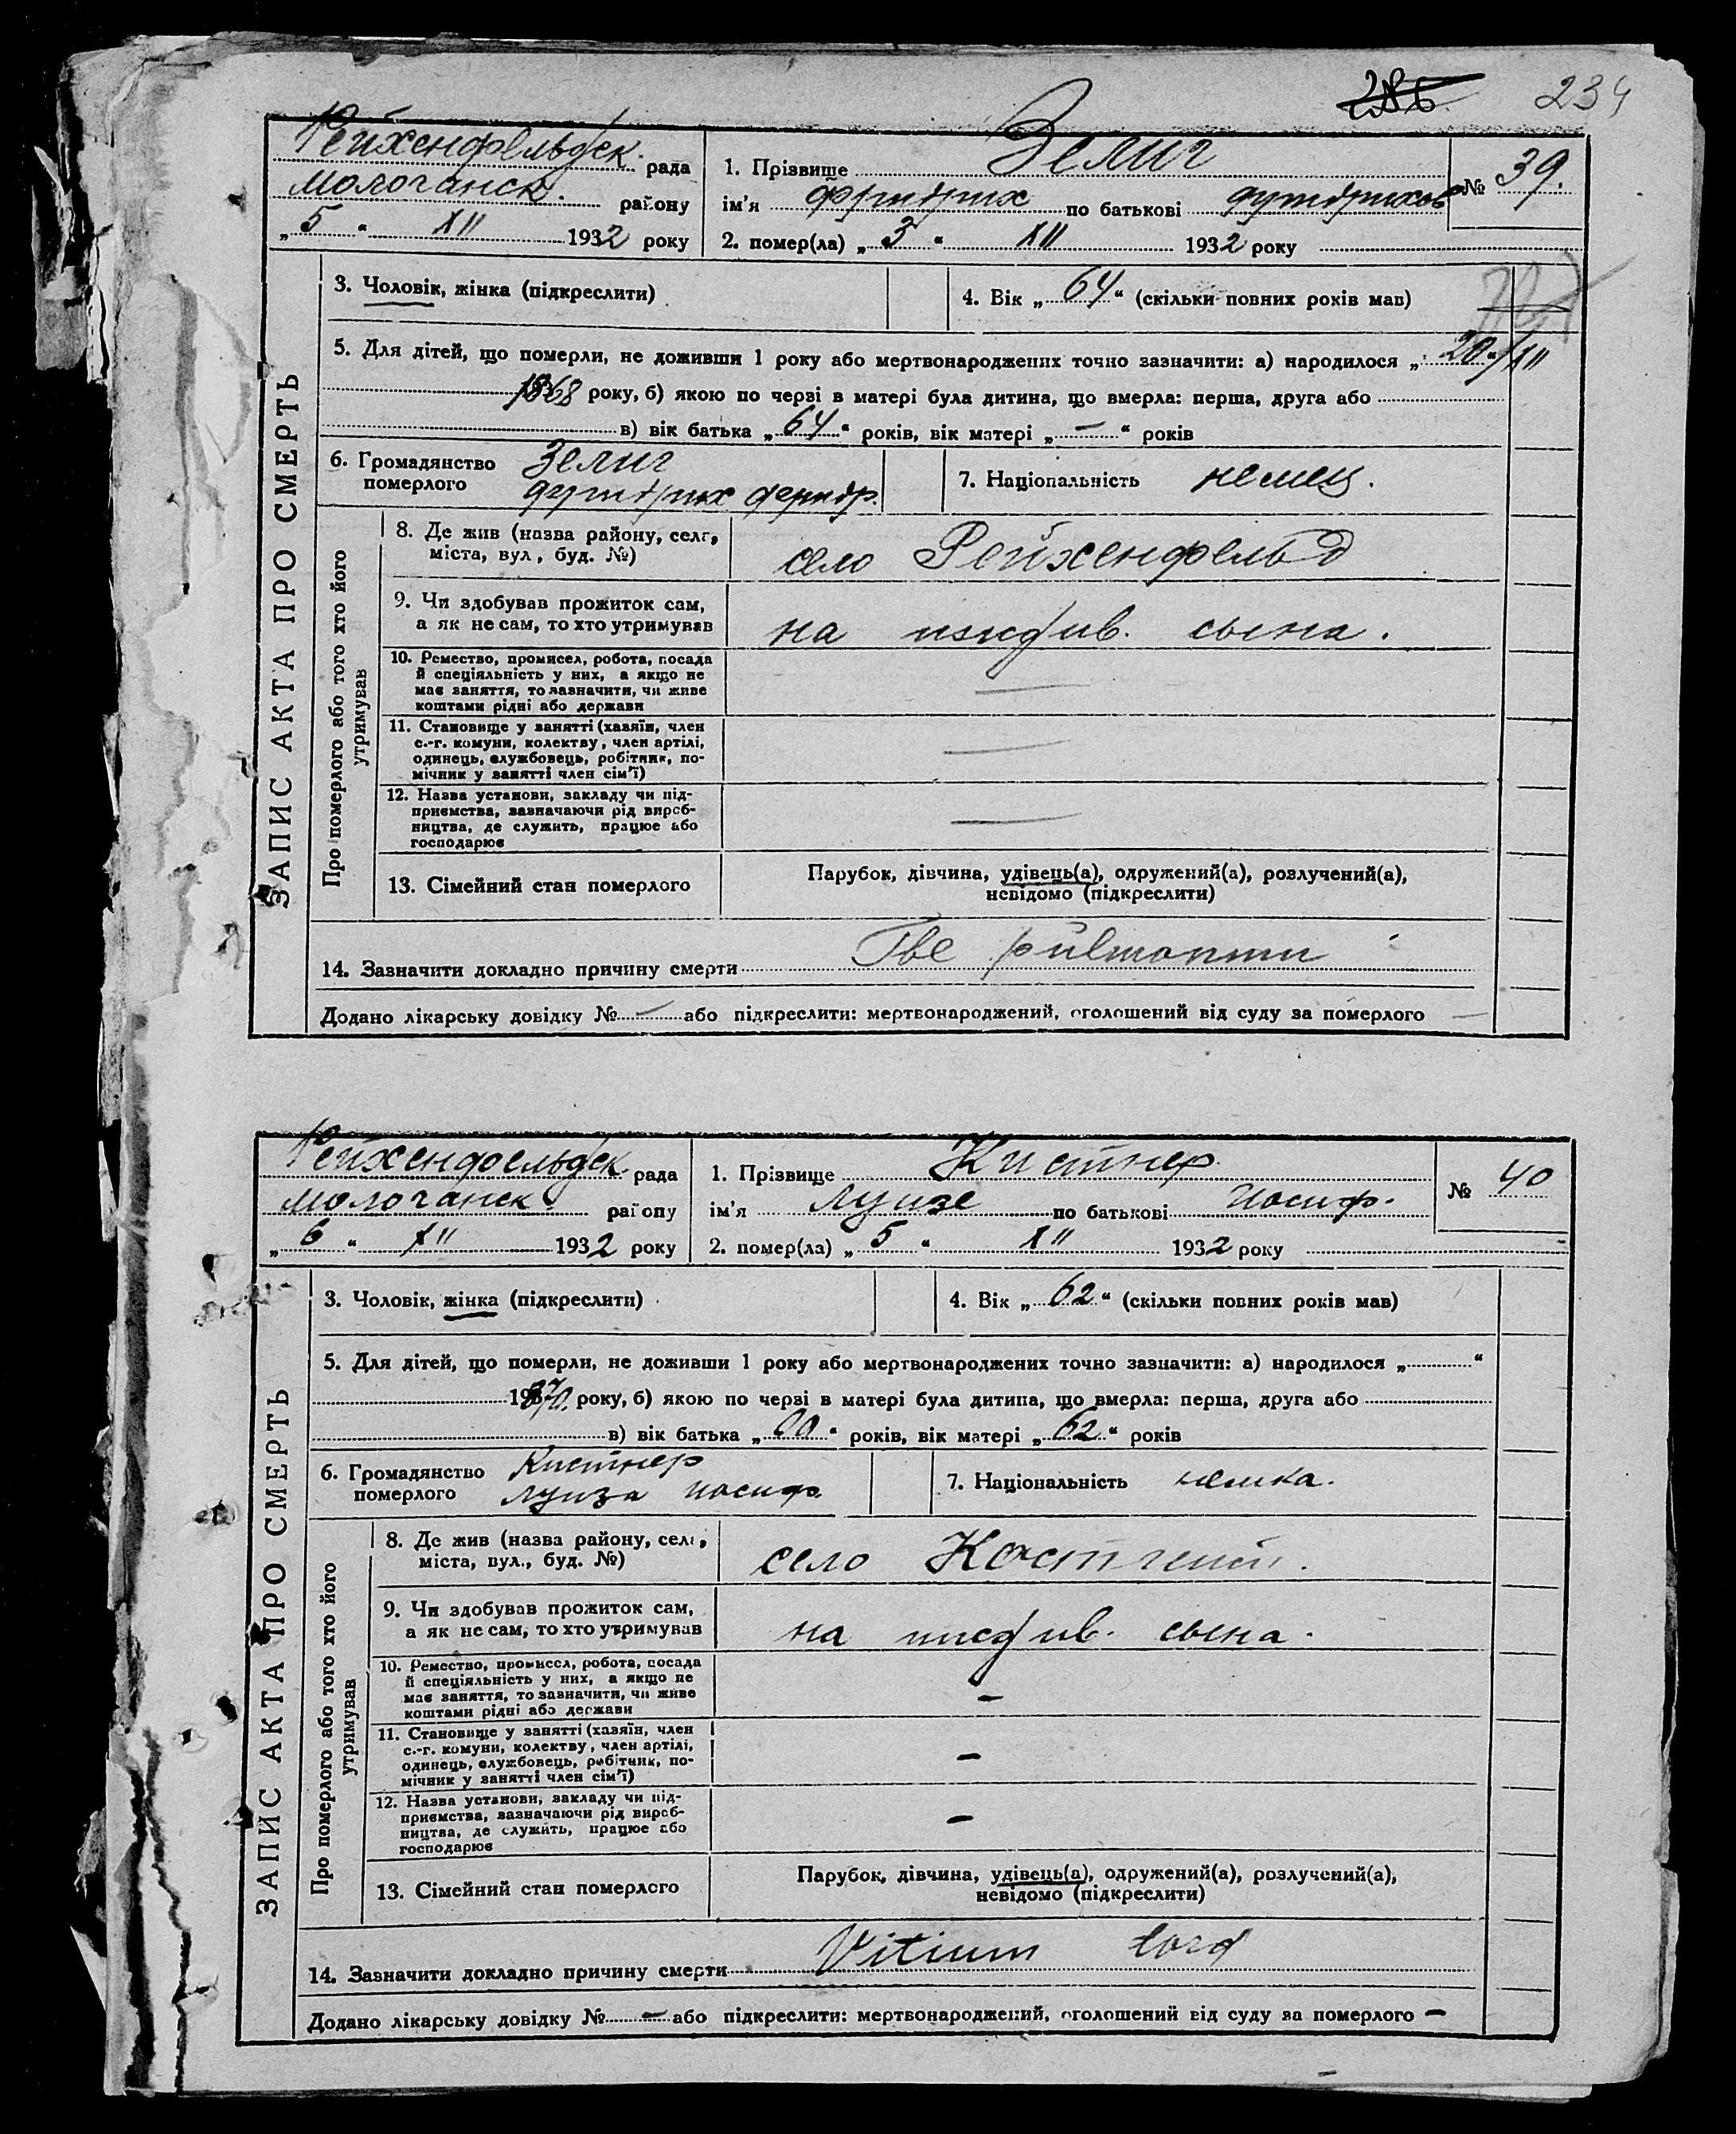 286 234
Рейхенфельдск. рада
Молочанск. району
„ 5 “ XII 1932 року
1. Прізвище Зелиг
ім'я Фридрих по батькові Фридрихов
2. помер(ла) „ 3 “ XII 1932 року
№ 39.
ЗАПИС АКТА ПРО СМЕРТЬ
3. Чоловік, жінка (підкреслити)
4. Вік „ 64 “ (скільки повних років мав)
5. Для дітей, що померли, не доживши 1 року або мертвонароджених точно зазначити: а) народилося „ 20 “ XII
1868 року, б) якою по черзі в матері була дитина, що вмерла: перша, друга або
в) вік батька „ 64 “ років, вік матері „ — “ років
6. Громадянство Зелиг
померлого Фридрих Фридр.
7. Національність немец.
Про померлого або того хто його
утримував
8. Де жив (назва району, села,
міста, вул, буд. №)
село Рейхенфельд
9. Чи здобував прожиток сам,
а як не сам, то хто утримував
на иждив. сына.
10. Ремество, промисел, робота, посада
й спеціяльність у них, а якщо не
має заняття, то зазначити, чи живе
коштами рідні або держави
—
11. Становище у занятті (хазяїн, член
с.-г. комуни, колектву, член артілі,
одинець, службовець, робітник, по-
мічник у занятті член сім'ї)
—
12. Назва установи, закладу чи під-
приємства, зазначаючи рід вироб-
ництва, де служить, працює або
господарює
—
13. Сімейний стан померлого
Парубок, дівчина, удівець(а), одружений(а), розлучений(а),
невідомо (підкреслити)
14. Зазначити докладно причину смерти Tbc pulmonum
Додано лікарську довідку № — або підкреслити: мертвонароджений, оголошений від суду за померлого —
Рейхенфельдск. рада
Молочанск. району
„ 6 “ XII 1932 року
1. Прізвище Кистнер
ім'я Луизе по батькові Иосиф.
2. помер(ла) „ 5 “ XII 1932 року
№ 40
ЗАПИС АКТА ПРО СМЕРТЬ
3. Чоловік, жінка (підкреслити)
4. Вік „ 62 “ (скільки повних років мав)
5. Для дітей, що померли, не доживши 1 року або мертвонароджених точно зазначити: а) народилося „ “
1870. року, б) якою по черзі в матері була дитина, що вмерла: перша, друга або
в) вік батька „ 00 “ років, вік матері „ 62 “ років
6. Громадянство Кистнер
померлого Луиза Иосиф.
7. Національність немка.
Про померлого або того хто його
утримував
8. Де жив (назва району, села,
міста, вул., буд. №)
село
9. Чи здобував прожиток сам,
а як не сам, то хто утримував
на иждив. сына.
10. Ремество, промисел, робота, посада
й спеціяльність у них, а якщо не
має заняття, то зазначити, чи живе
коштами рідні або держави
—
11. Становище у занятті (хазяїн, член
с.-г. комуни, колектву, член артілі,
одинець, службовець, робітник, по-
мічник у занятті член сім'ї)
—
12. Назва установи, закладу чи під-
приємства, зазначаючи рід вироб-
ництва, де служить, працює або
господарює
—
13. Сімейний стан померлого
Парубок, дівчина, удівець(а), одружений(а), розлучений(а),
невідомо (підкреслити)
14. Зазначити докладно причину смерти Vitium cord
Додано лікарську довідку № — або підкреслити: мертвонароджений, оголошений від суду за померлого —